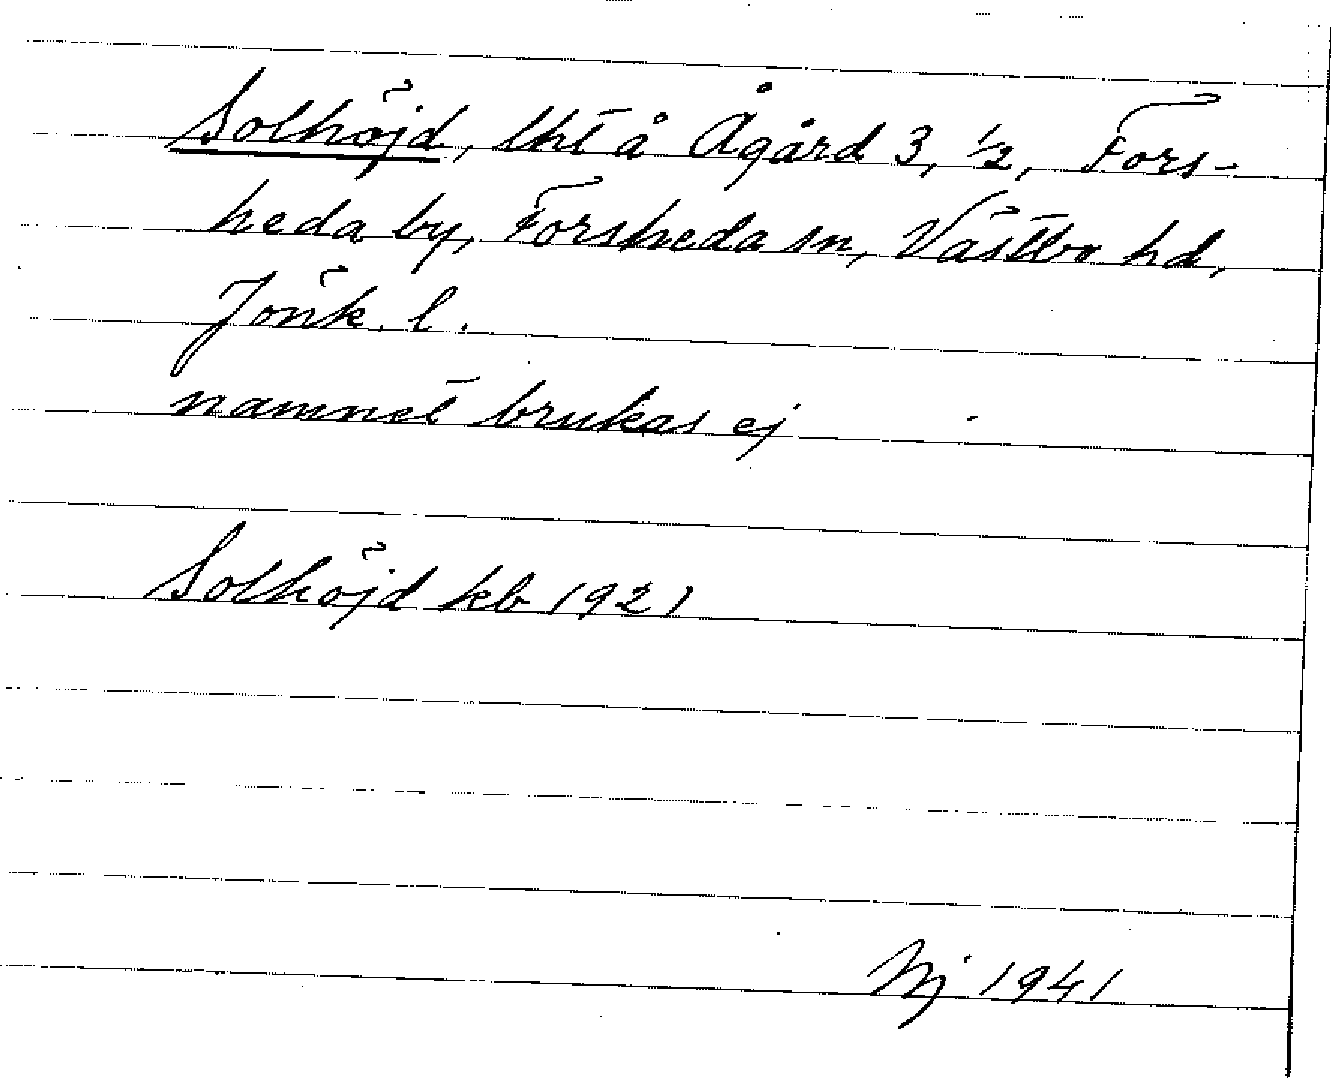 Solhöjd, lht å Ågård 3, 1/2, Fors-
heda by, Forsheda sn, Västbo hd,
Jönk. l.
namnet brukas ej
Solhöjd kb 1921
Nj 1941